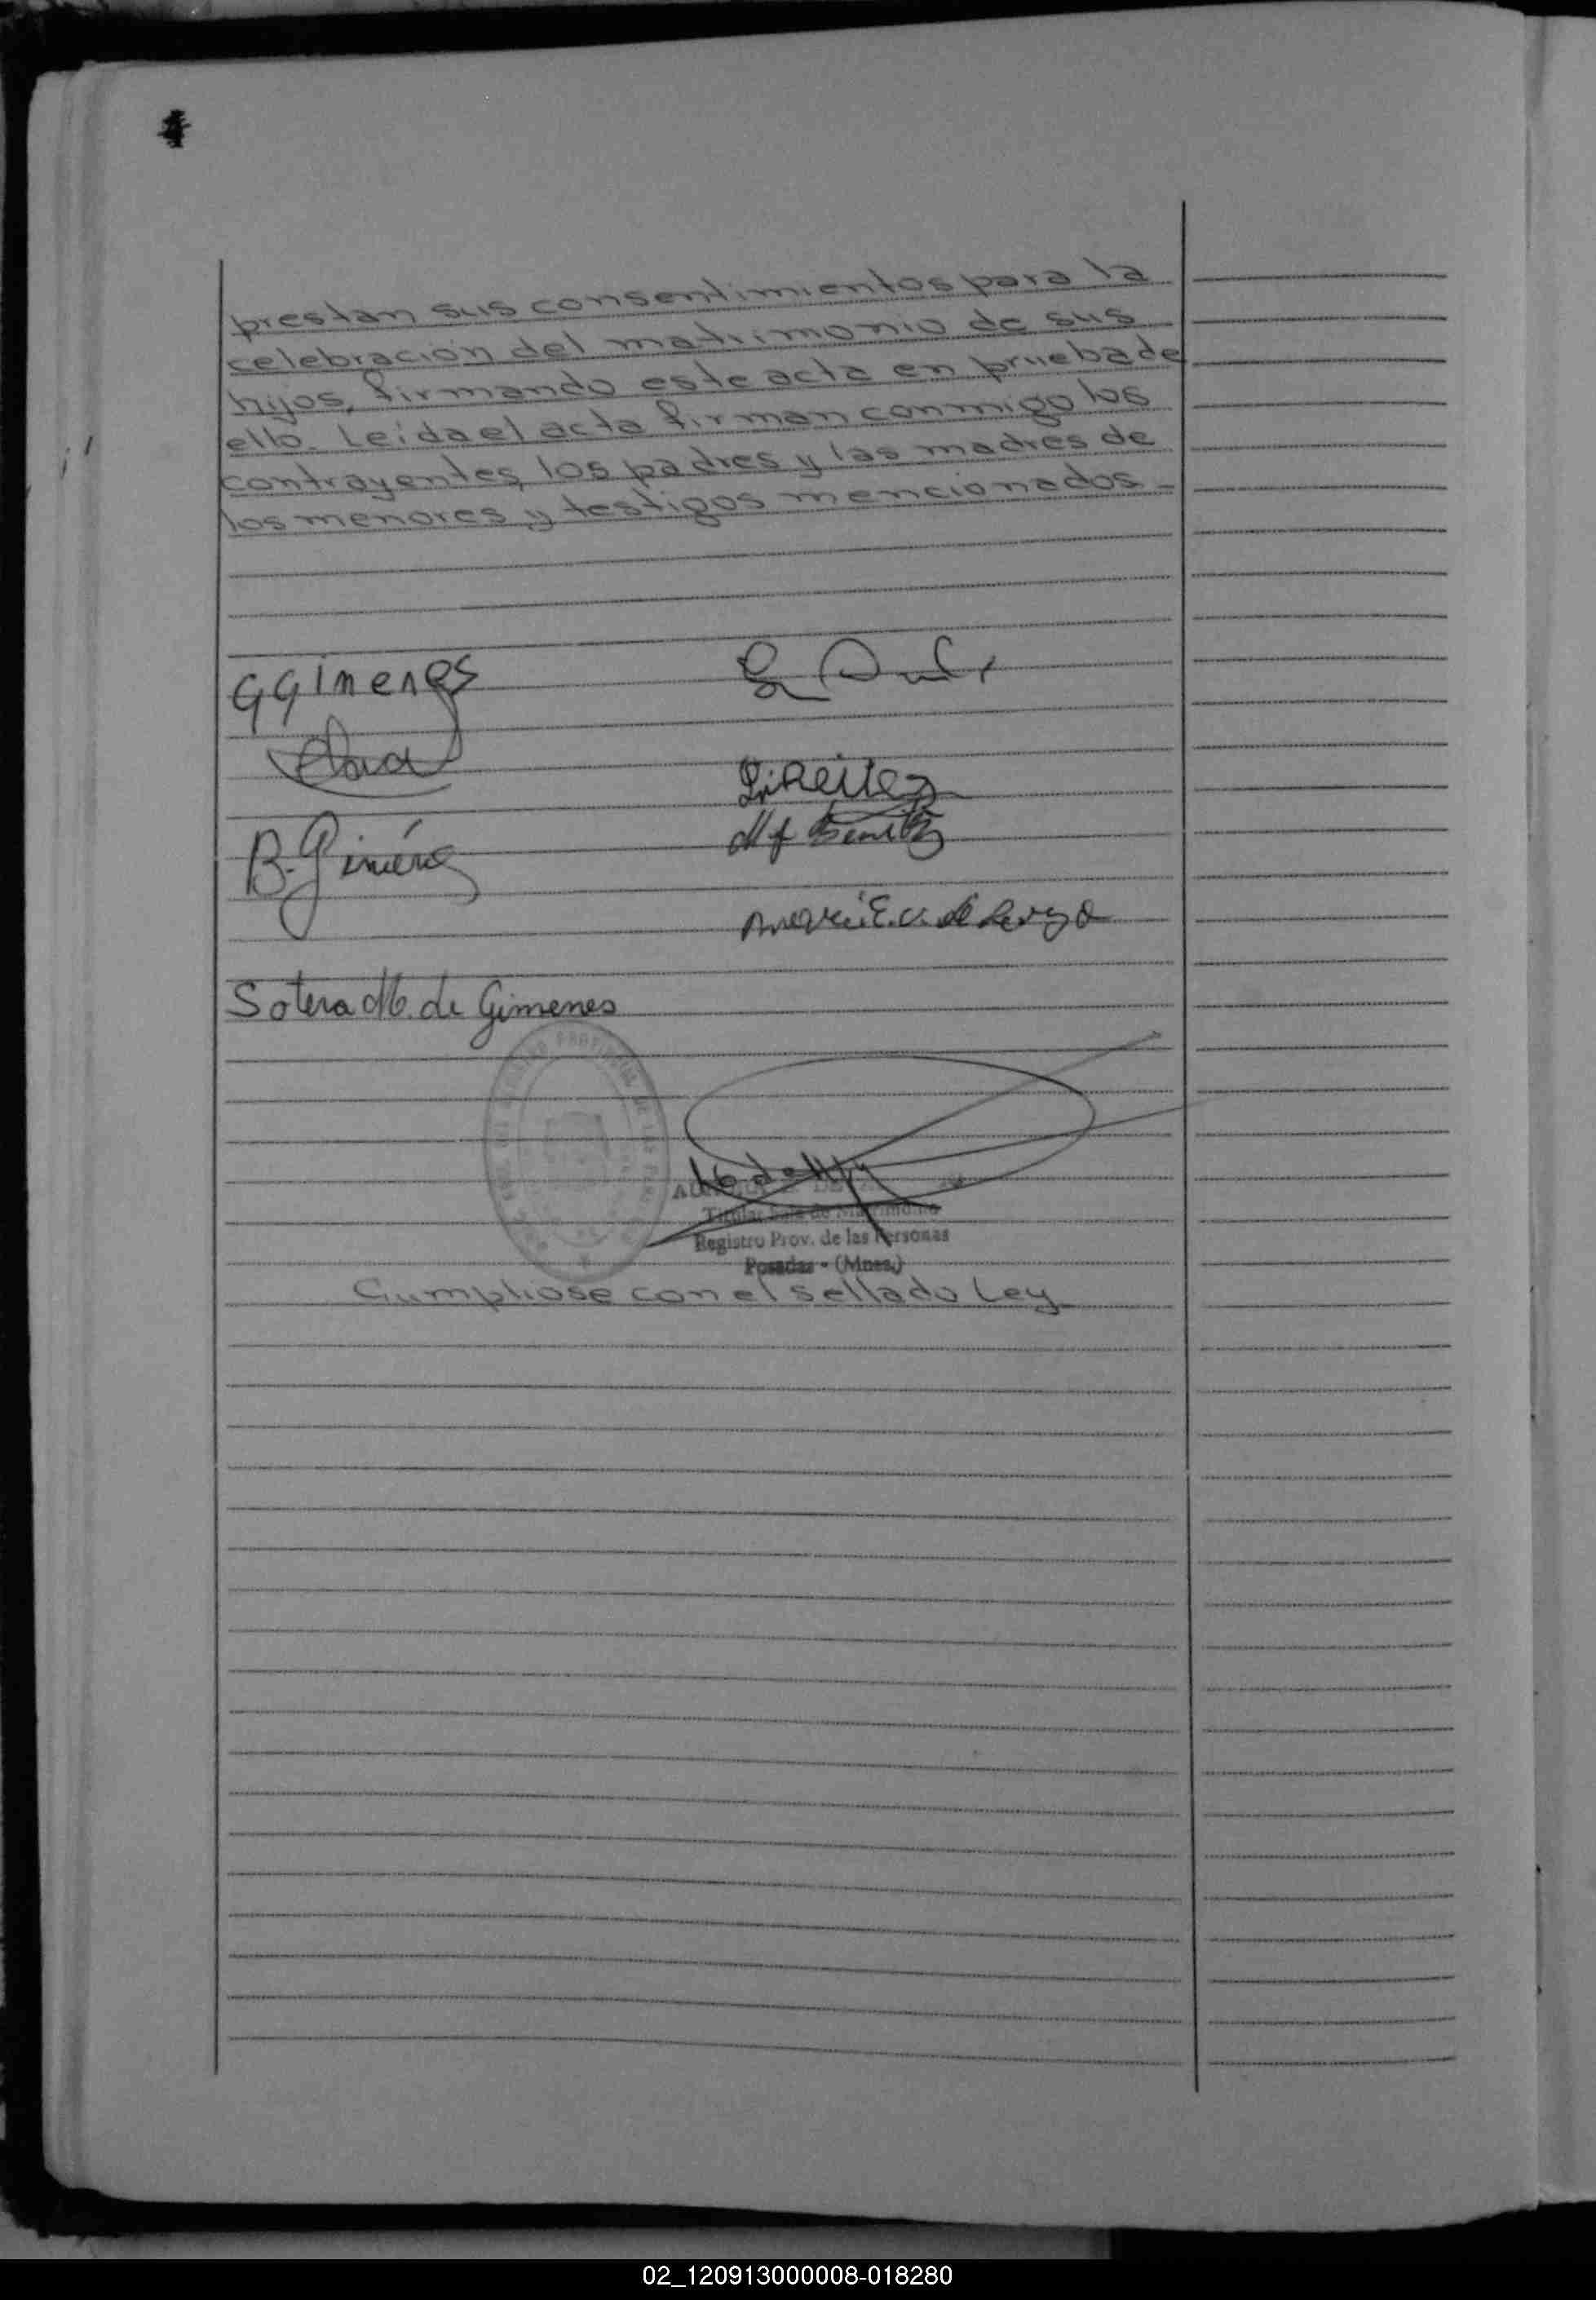 prestan sus consentimientos para la
celebracion del matrimonio de sus
hijos, firmando este acta en prueba de
ello. Leida el acta firman conmigo los
contrayentes, los padres y las madres de
los menores, y testigos mencionados.-
GGimenes
B. Giménez
M f Benitez
Sotera M. de Gimenes
Titular Sala de Matrimonio
Registro Prov. de las Personas
Posadas - (Mnes.)
Cumpliose con el sellado Ley
02_120913000008-018280